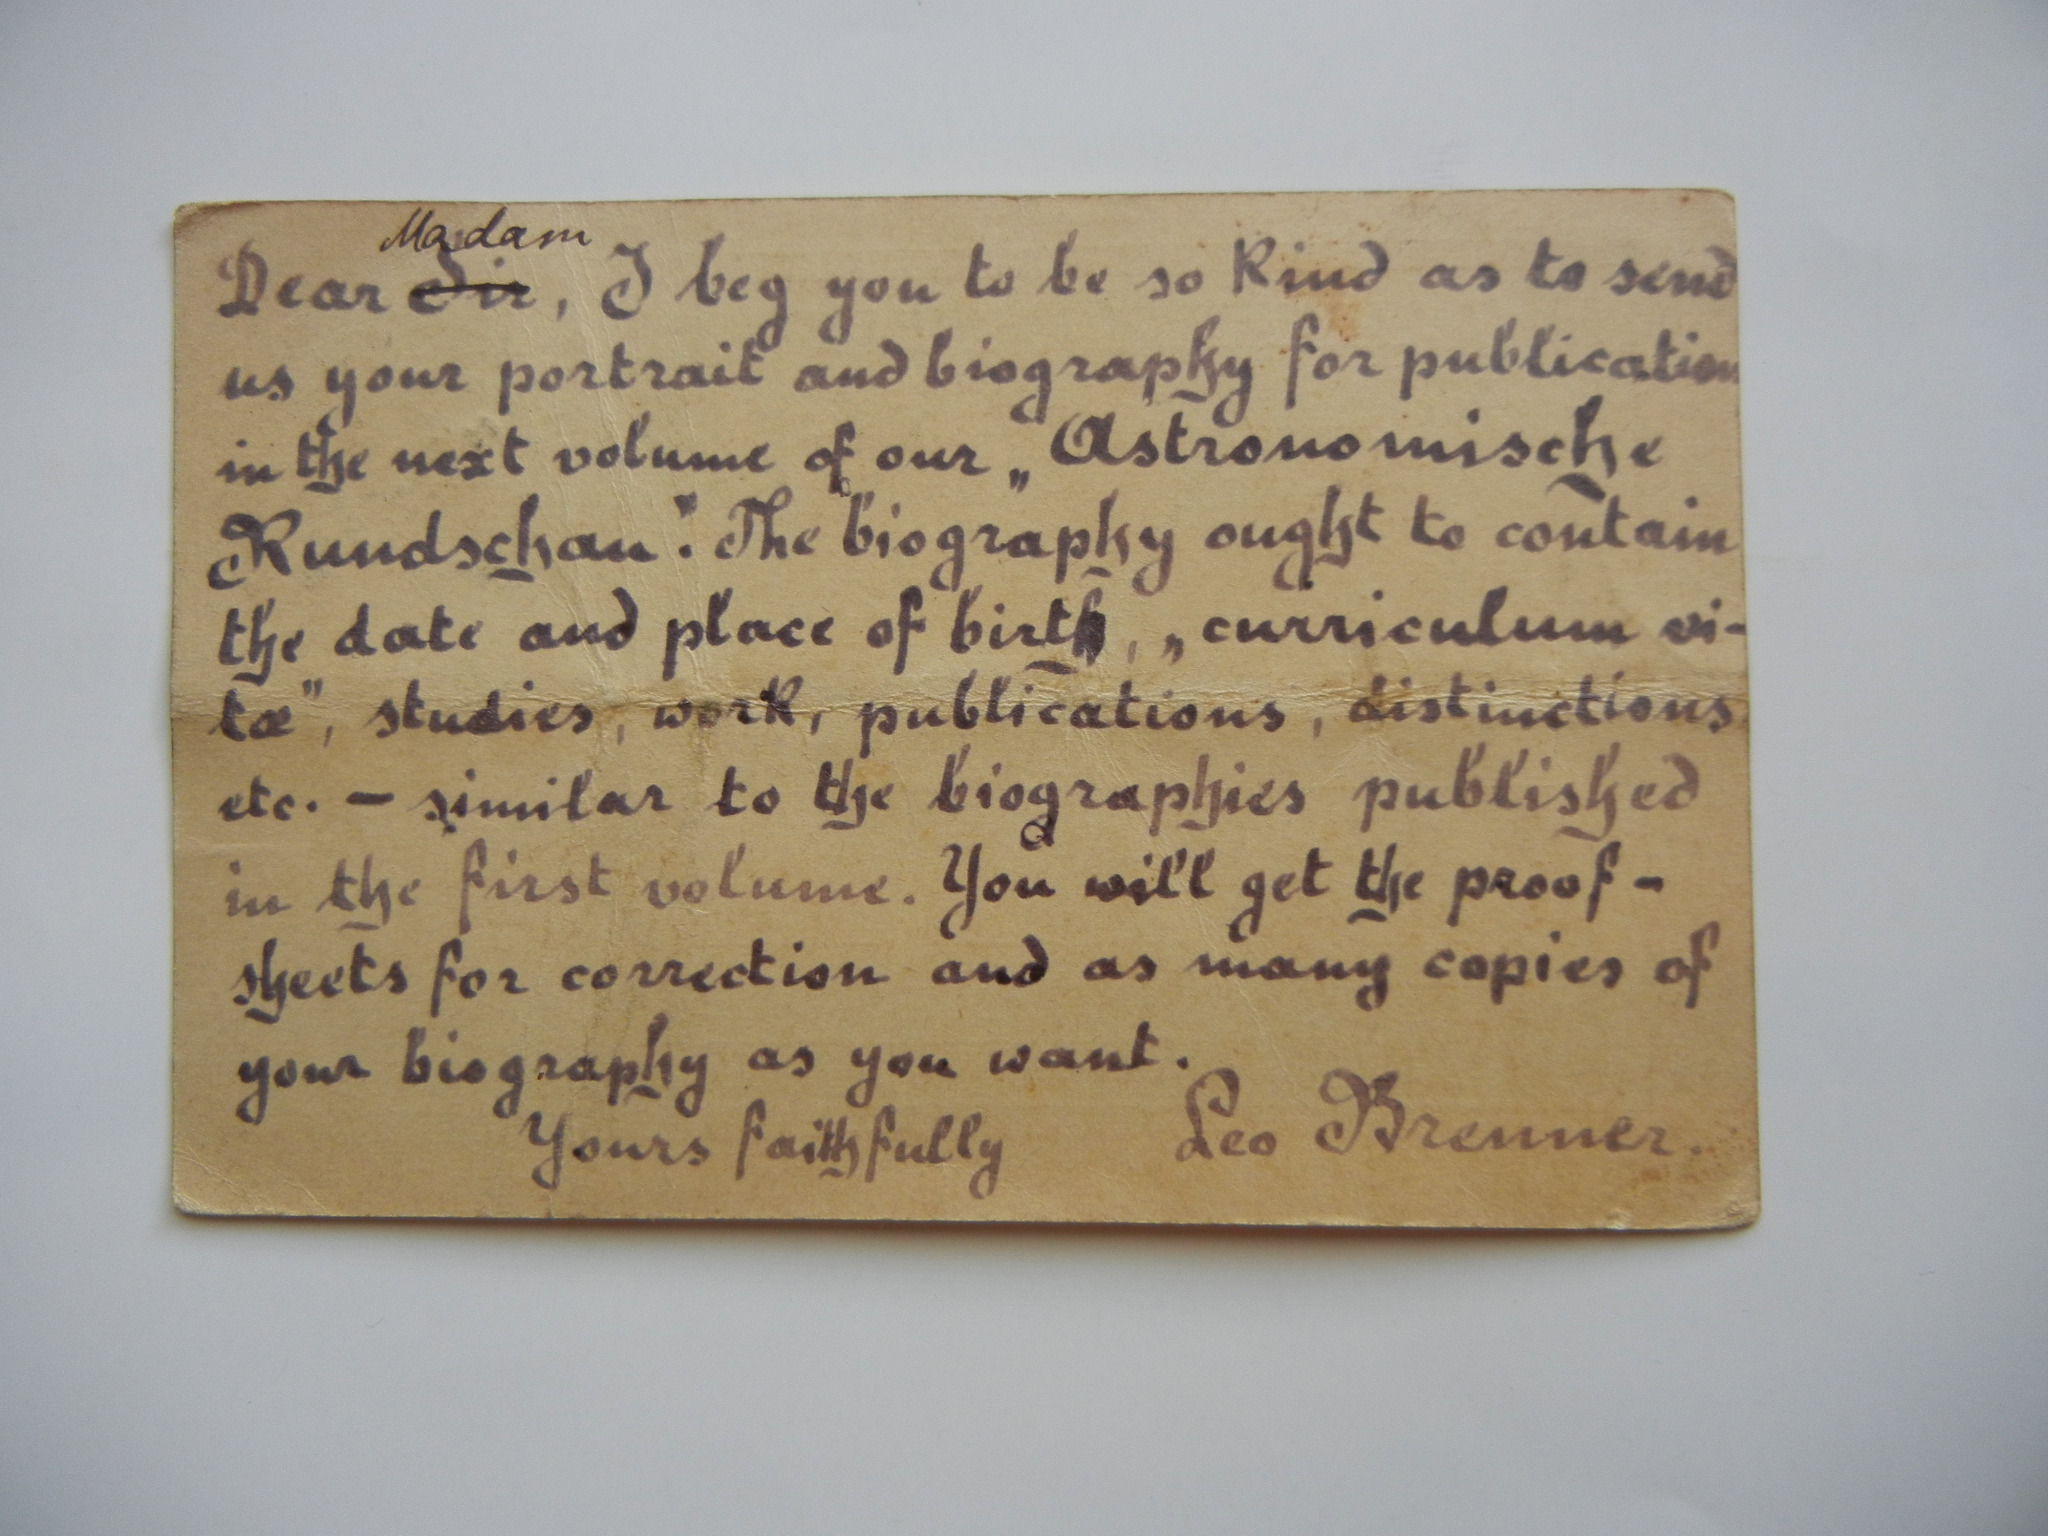 Madam
Dear Sir, I beg you to be so kind as to send
us your portrait and biography for publication
in the next volume of our „Astronomische
Rundschau". The biography ought to contain
the date and place of birth, „curriculum vi-
tæ", studies, work, publications, distinctions
etc. – similar to the biographies published
in the first volume. You will get the proof-
sheets for correction and as many copies of
your biography as you want.
Yours faithfully Leo Brenner.